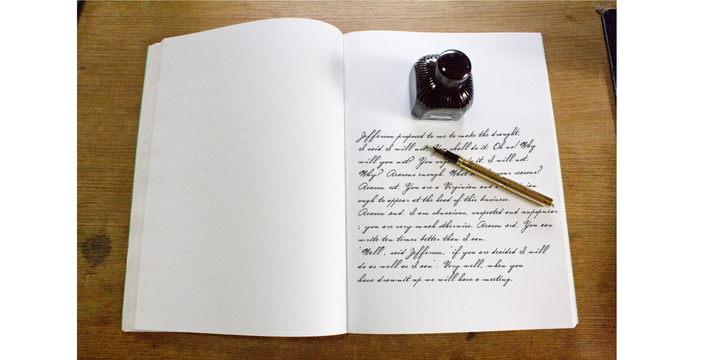 Jefferson proposed to me to make the draught.
I said I will not. You shall do it. Oh no! Why
will you not? You it. I will not.
Why? Reasons enough. What your reasons?
Reason 1st. You are a Virginian and
ough to appear at the head of this business.
Reason 2nd. I am obnoxious, suspected and unpopular
: you are very much otherwise. Reason 3rd. You can
write ten times better than I can.
'Well', said Jefferson, 'if you are decided I will
do as well as I can'. Very well, when you
have drawnit up we will have a meeting.